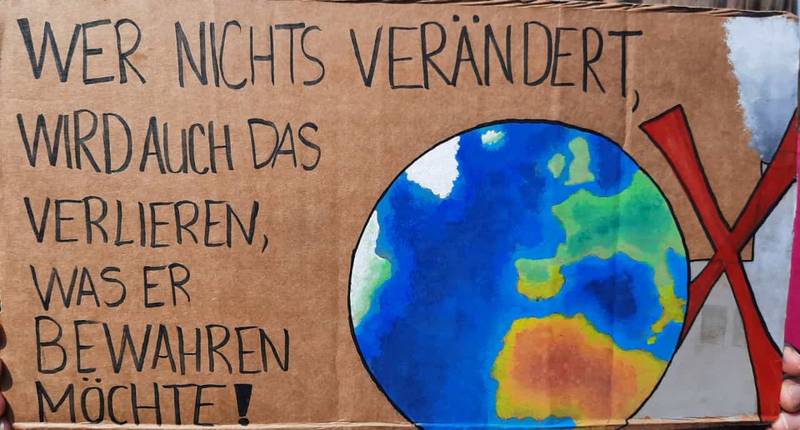 WER NICHTS VERÄNDERT,
WIRD AUCH DAS
VERLIEREN,
WAS ER
BEWAHREN
MÖCHTE!